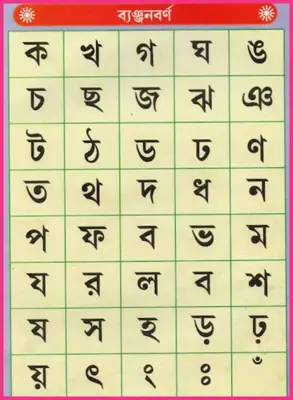 ব্যঞ্জনবর্ণ
ক খ গ ঘ ঙ
চ ছ জ ঝ ঞ
ট ঠ ড ঢ ণ
ত থ দ ধ ন
প ফ ব ভ ম
য র ল ব শ
ষ স হ ড় ঢ়
য় ৎ ং ঃ ঁ